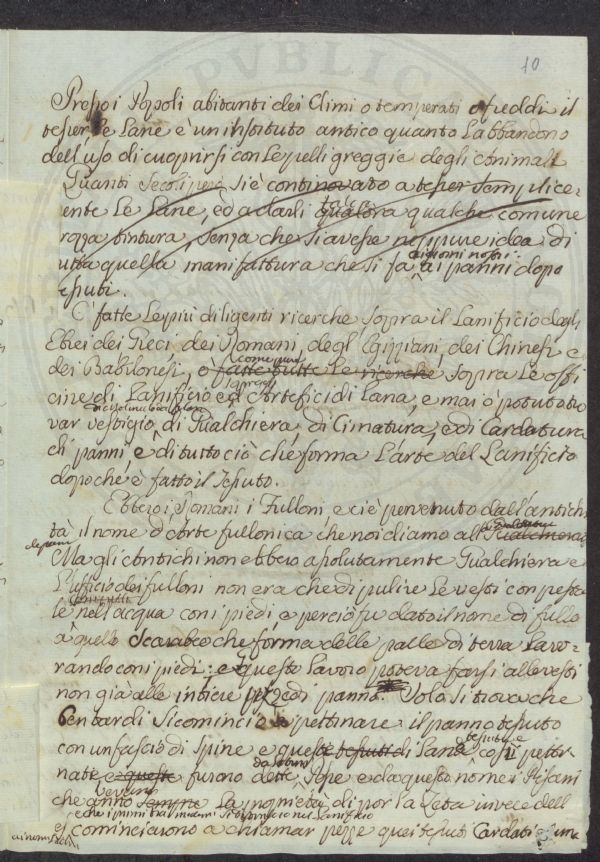 10
Presso i Popoli abitanti dei Climi o temperati o freddi il
tesser le Lane è un instituto antico quanto L'abbandono
dell'uso di cuoprirsi con Le pelli greggie degli animali
Quanti Secoli però si è continovato a tesser semplice-
mente Le Lane, ed a darli qualche comune
rozza tintura, senza che si avesse neppure idea di
tutta quella manifattura che si fa ai giorni nostri ai panni dopo
tessuti.
O' fatte Le più diligenti ricerche sopra il Lanificio degli
Ebrei dei Greci dei Romani, degl'Egizziani, dei Chinesi e
dei Babilonesi, come pure sopra Le offi
cine di Lanificio ed Artefici di Lana, e mai ò potuto tro
var vestigio, di Gualchiera, di Cimatura, e di Cardatura
di panni, e di tutto ciò che forma L'arte del Lanificio
dopo che è fatto il Tessuto.
Ebbero i Romani i Fulloni, e ci è pervenuto dall'antichi
tà il nome d'Arte fullonica che noi diamo alla Gualchiera
Ma gli Antichi non ebbero assolutamente Gualchiera e
L'ufficio dei fulloni non era che di pulire Le vesti con pesta
le nell'acqua con i piedi e perciò fu dato il nome di fullo
a quello Scarabeo che forma delle palle di terra Lavo-
rando con i piedi: e questo Lavoro poteva farsi alle vesti
non già alle intiere pezze di panno. Solo si trova che
ben tardi si cominciò a pettinare il panno tessuto
con un fascio di Spine e queste tessute di Lana così petti-
nate furono dette Pesse e da questo nome i Pisani
che anno La proprietà di por la Zeta invece dell
es cominciarono a chiamar pezze quei tessuti Cardati